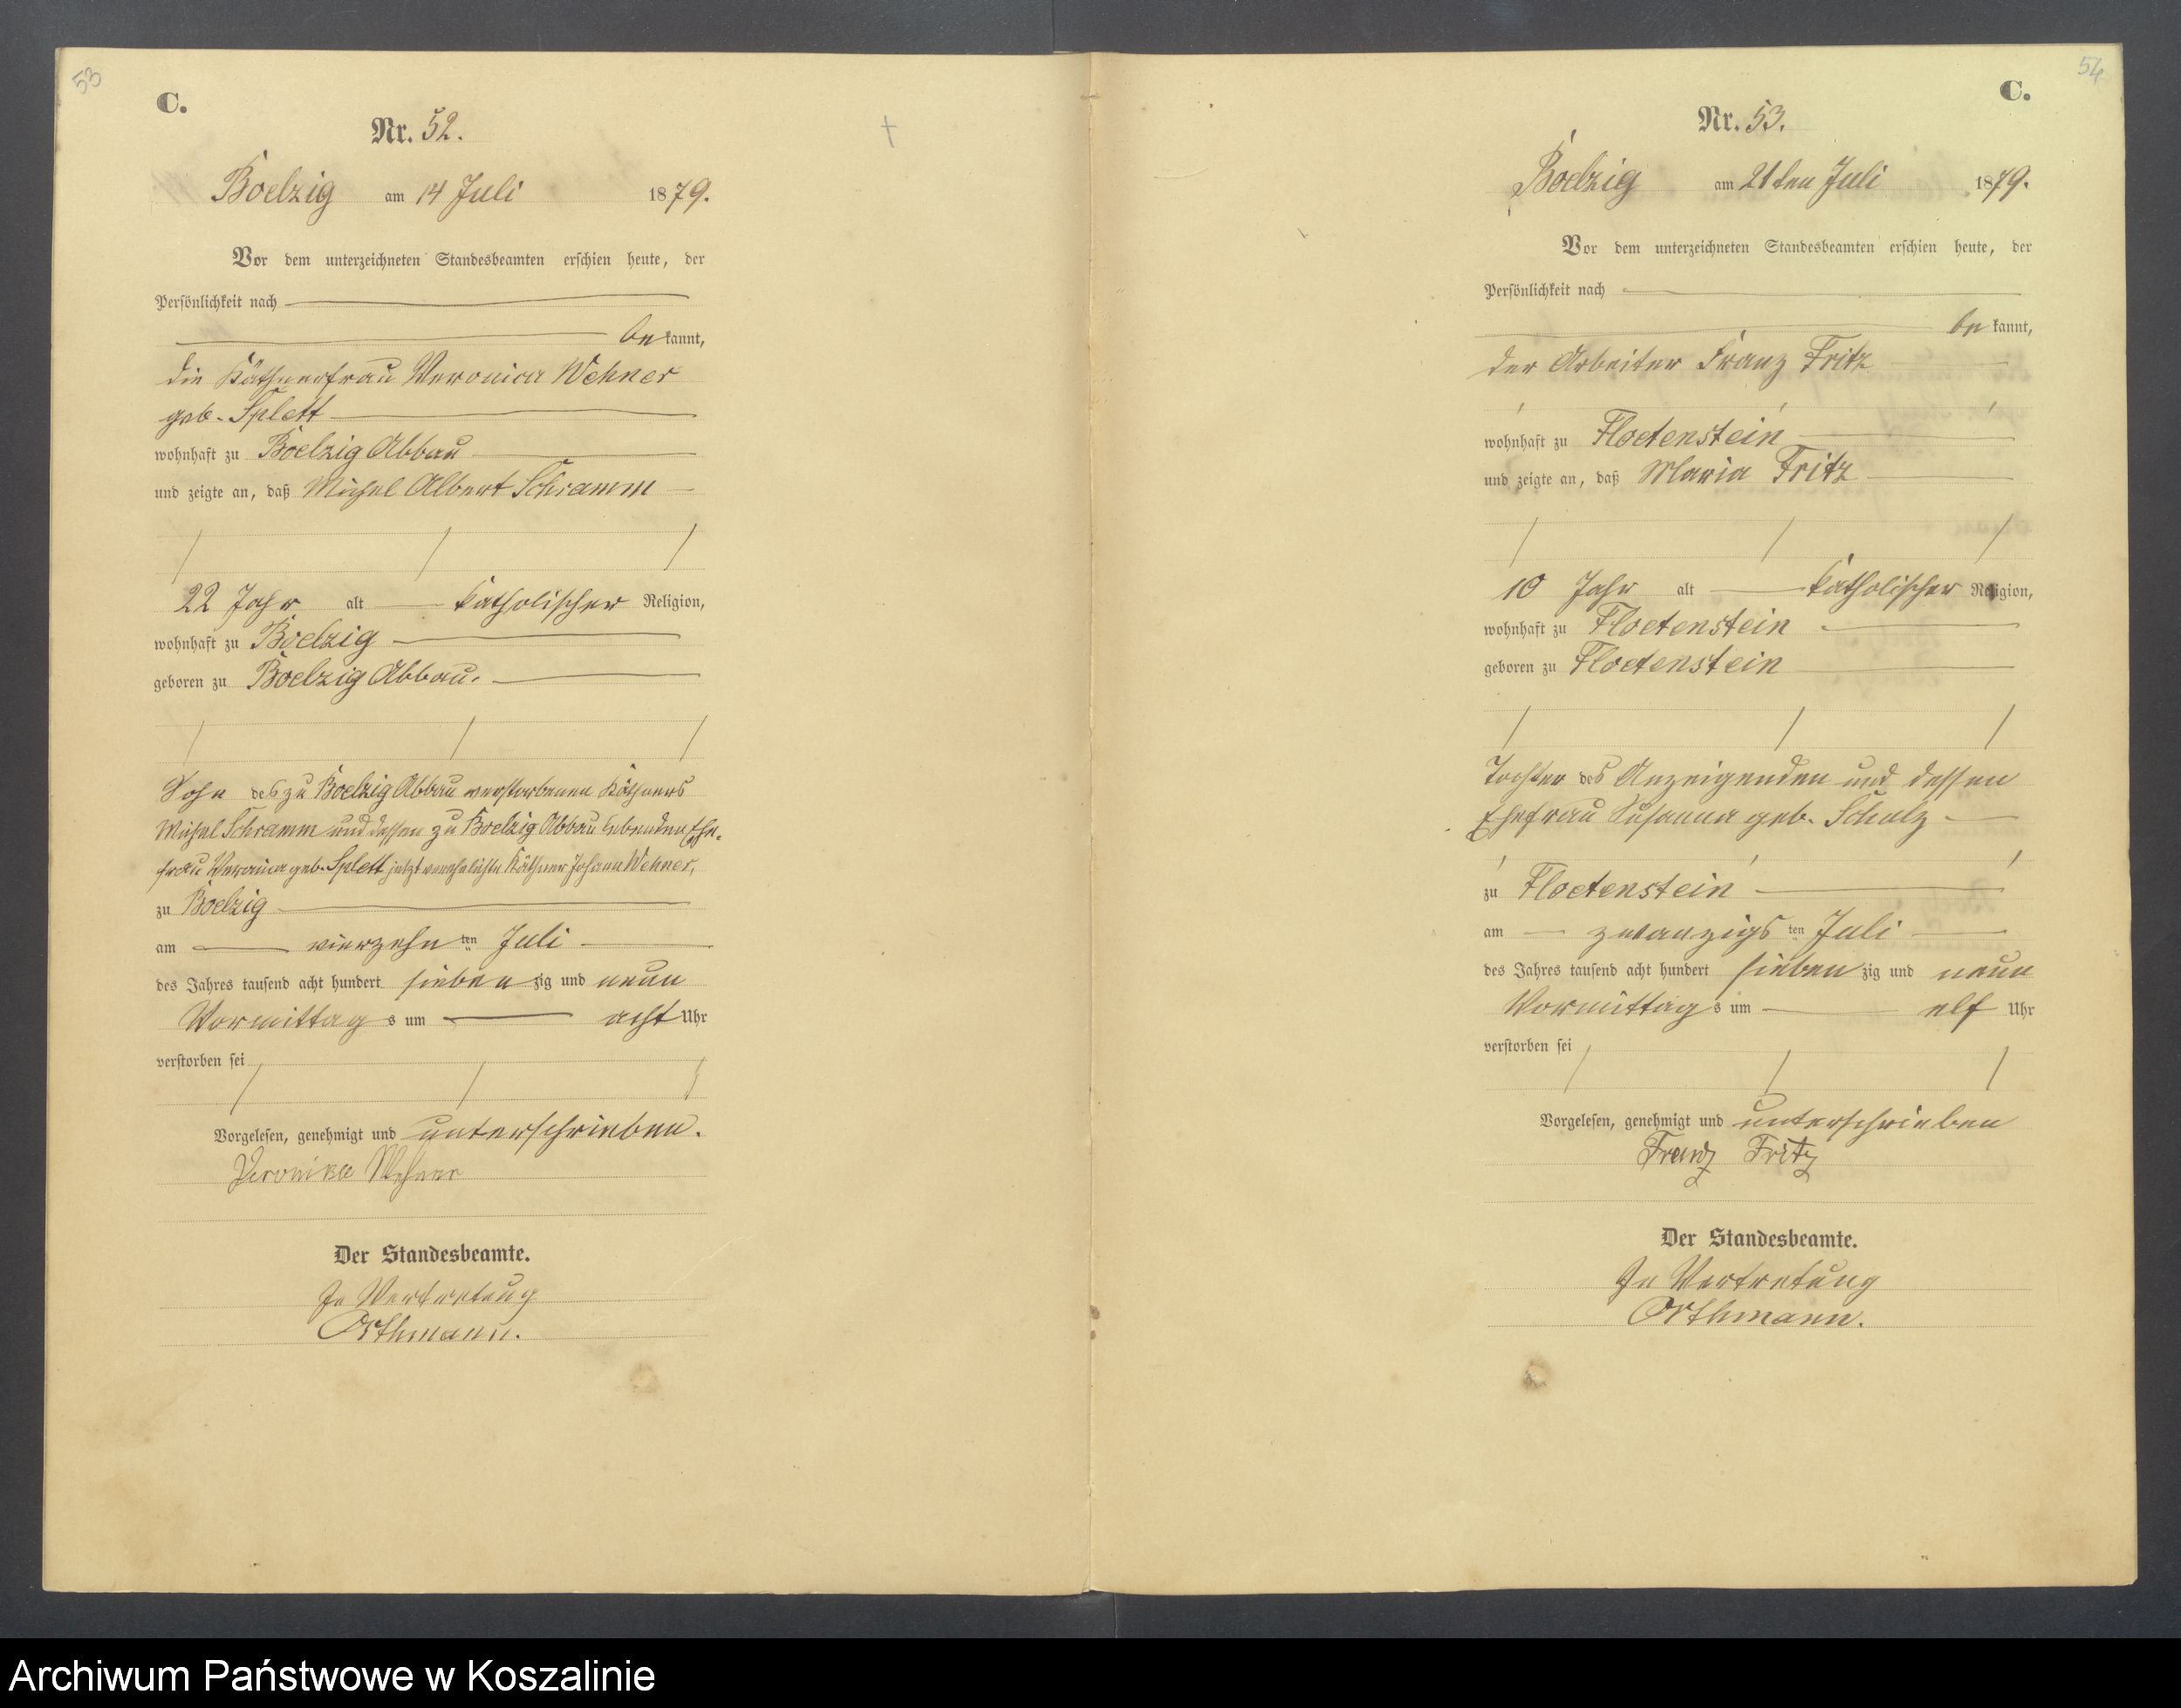 53
C.
Nr. 52.
Boelzig am 14 Juli 1879.
Vor dem unterzeichneten Standesbeamten erschien heute, der
Persönlichkeit nach
bekannt,
die Käthnerfrau Veronica Wehner
geb. Splett
wohnhaft zu Boelzig Abbau
und zeigte an, daß Michel Albert Schramm
22 Jahr alt katholischer Religion,
wohnhaft zu Boelzig
geboren zu Boelzig Abbau.
Sohn des zu Boelzig Abbau verstorbenen Käthners
Michel Schramm und dessen zu Boelzig Abbau lebenden Ehe-
frau Veronica geb. Splett jetzt verehelichte Käthner Johann Wehner,
zu Boelzig
am vierzehnten Juli
des Jahres tausend acht hundert siebenzig und neun
Vormittags um acht Uhr
verstorben sei
Vorgelesen, genehmigt und unterschrieben.
Veronika Wehner
Der Standesbeamte.
In Vertretung
Orthmann.
54
C.
Nr. 53.
Boelzig am 21ten Juli 1879.
Vor dem unterzeichneten Standesbeamten erschien heute, der
Persönlichkeit nach
bekannt,
der Arbeiter Franz Fritz
wohnhaft zu Floetenstein
und zeigte an, daß Maria Fritz
10 Jahr alt katholischer Religion,
wohnhaft zu Floetenstein
geboren zu Floetenstein
Tochter des Anzeigenden und dessen
Ehefrau Susanna geb. Schulz
zu Floetenstein
am zwanzigsten Juli
des Jahres tausend acht hundert siebenzig und neun
Vormittags um elf Uhr
verstorben sei
Vorgelesen, genehmigt und unterschrieben
Franz Fritz
Der Standesbeamte.
In Vertretung
Orthmann.
Archiwum Państwowe w Koszalinie